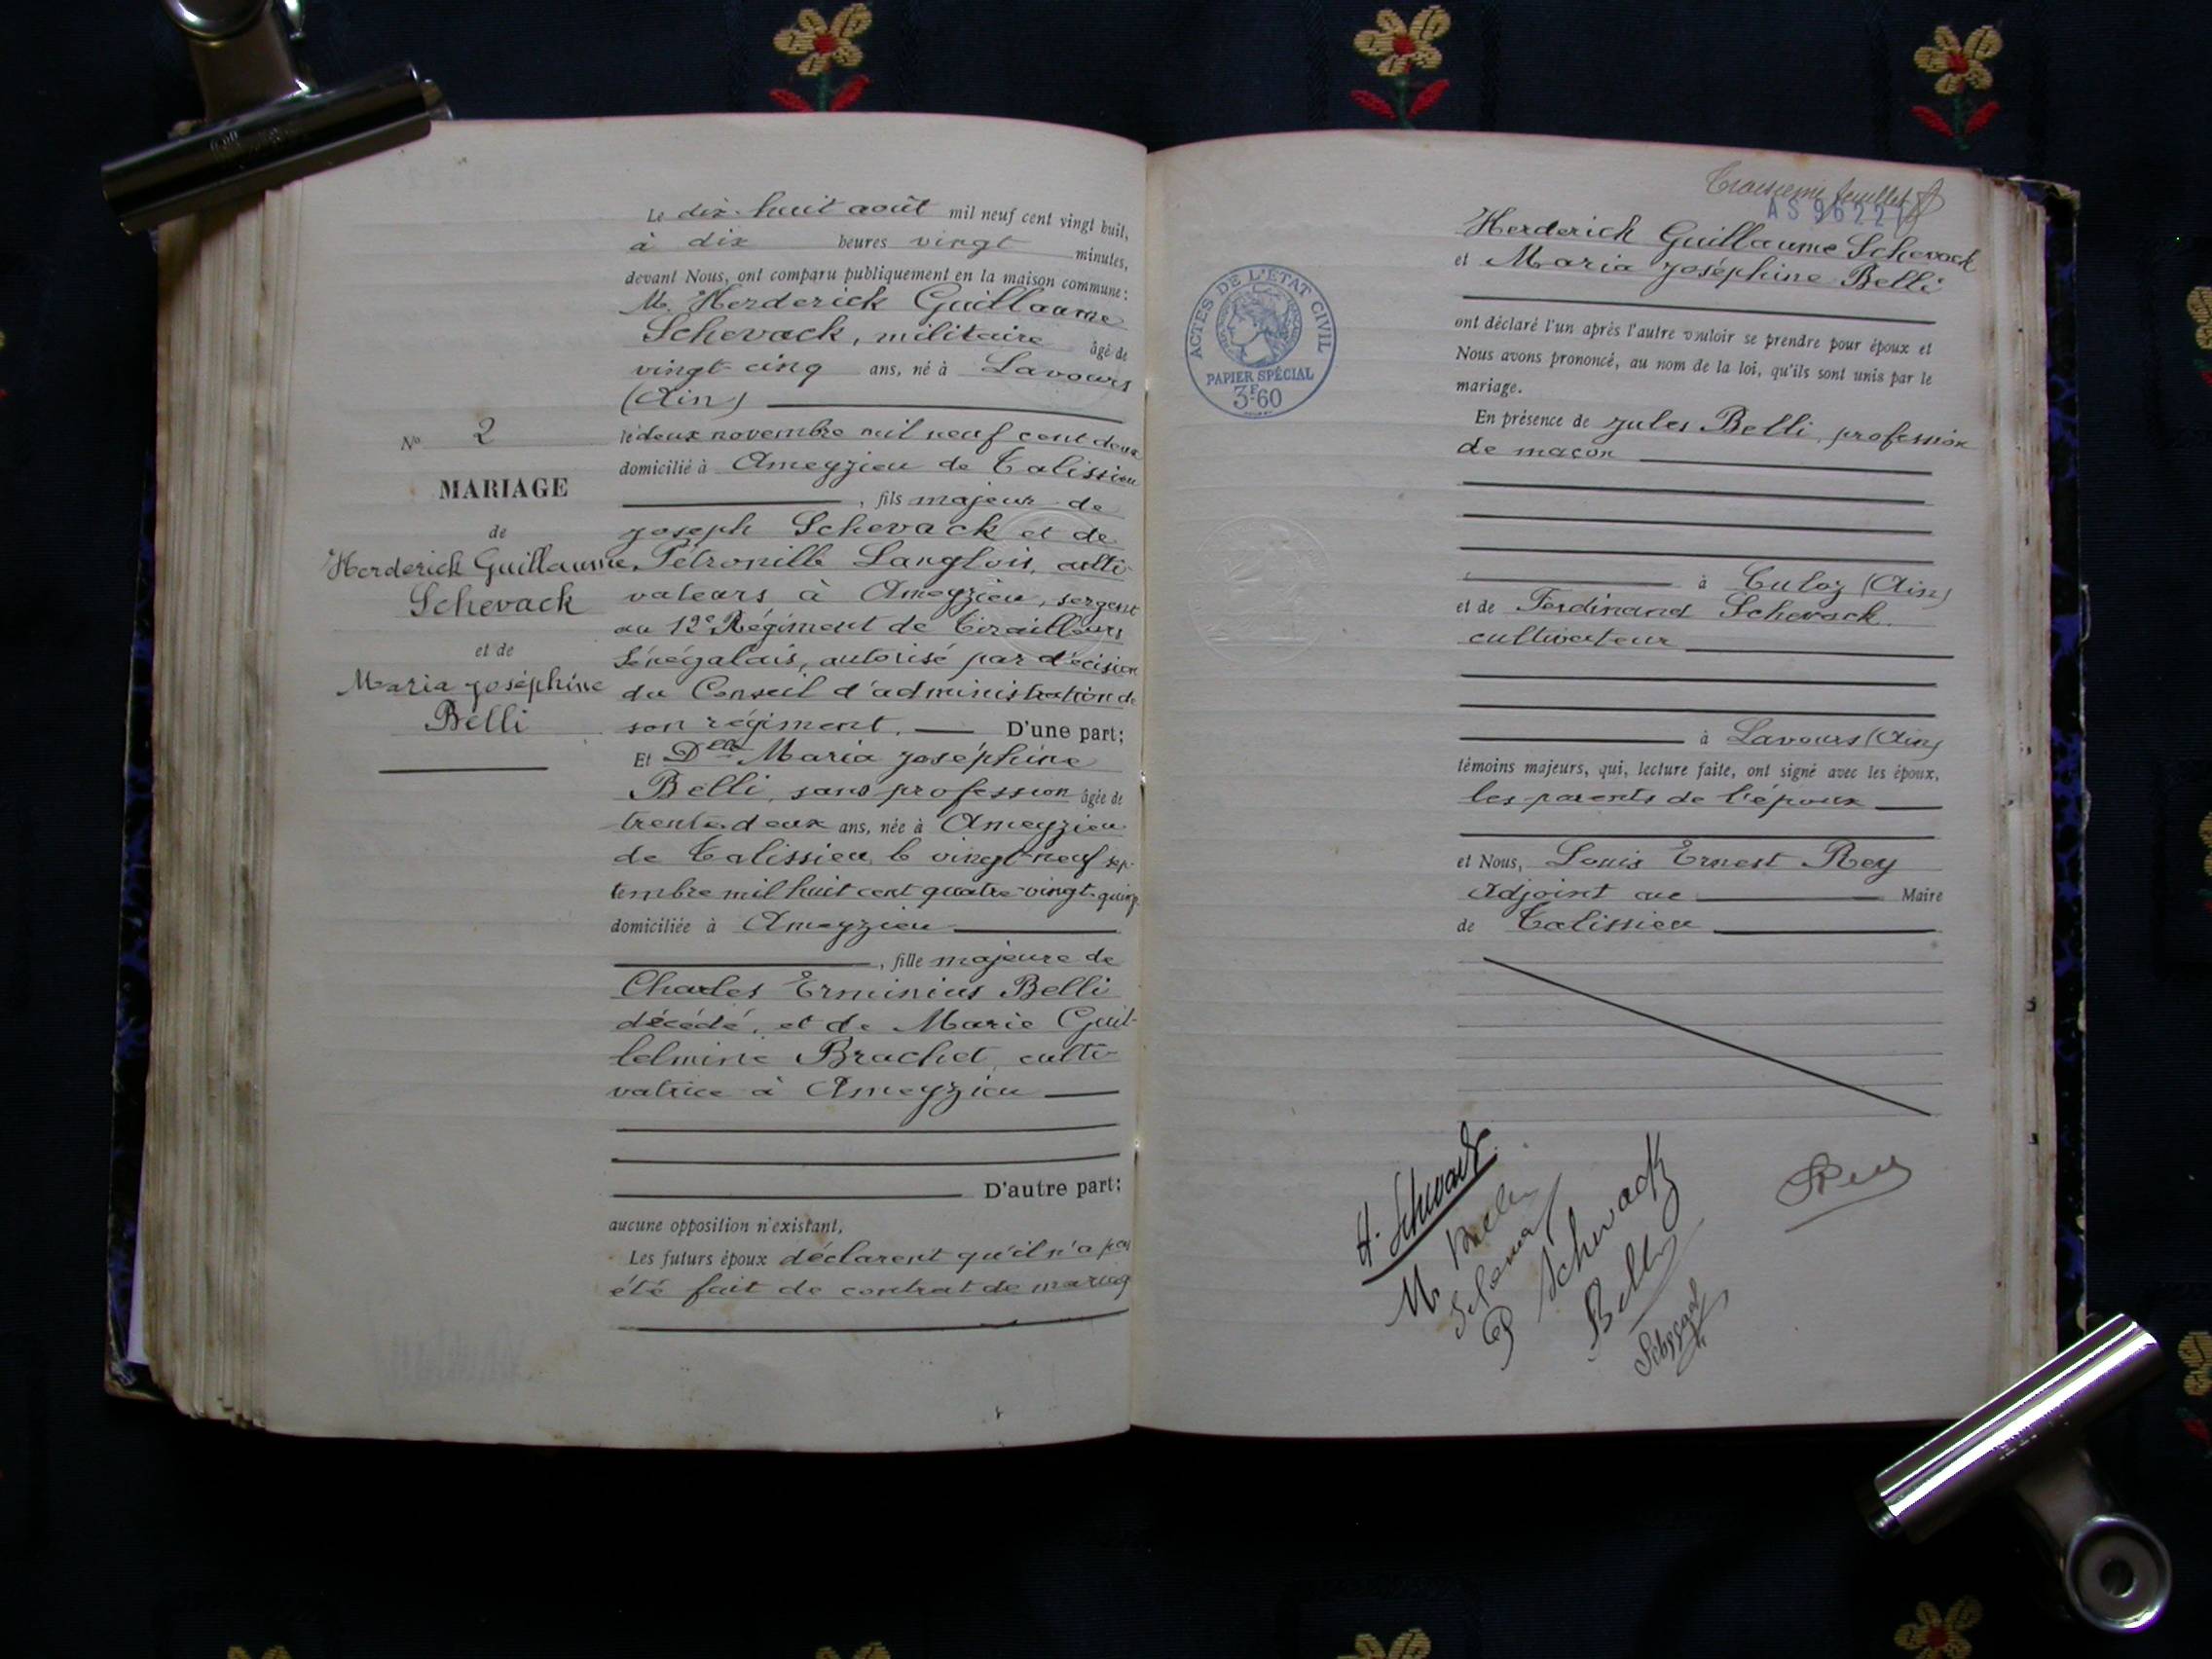 Le dix-huit août mil neuf cent vingt huit,
à dix heures vingt minutes,
devant Nous, ont comparu publiquement en la maison commune:
M. Herderick Guillaume
Schevack, militaire âgé de
vingt-cinq ans, né à Lavours
(Ain)
le deux novembre mil neuf cent deux
domicilié à Ameyzieu de Talissieu
, fils majeur de
Joseph Schevack et de
Pétronille Langlois, culti-
vateurs à Ameyzieu, sergent
au 12e Régiment de Tirailleurs
Sénégalais, autorisé par décision
du Conseil d'administration de
son régiment. D'une part;
Et Dlle Maria Joséphine
Belli, sans profession âgée de
trente-deux ans, née à Ameyzieu
de Talissieu le vingt-neuf sep-
tembre mil huit cent quatre-vingt-quinz
domiciliée à Ameyzieu
, fille majeure de
Charles Erminius Belli
décédé, et de Marie Guil-
lelmine Brachet, culti-
vatrice à Ameyzieu
D'autre part;
aucune opposition n'existant,
Les futurs époux déclarent qu'il n'a pas
été fait de contrat de mariag
No 2
MARIAGE
de
Herderick Guillaume
Schevack
et de
Maria Joséphine
Belli
Troisième feuillet
AS 96221
ACTES DE L'ÉTAT CIVIL
PAPIER SPÉCIAL
3F60
Herderich Guillaume Schevack
et Maria Joséphine Belli
ont déclaré l'un après l'autre vouloir se prendre pour époux et
Nous avons prononcé, au nom de la loi, qu'ils sont unis par le
mariage.
En présence de Jules Belli, profession
de maçon
à Culoz (Ain)
et de Ferdinand Schevack
cultivateur
à Lavours (Ain)
témoins majeurs, qui, lecture faite, ont signé avec les époux,
les parents de l'époux
et Nous, Louis Ernest Rey
Adjoint au Maire
de Talissieu
H. Schevack
M Belli
Schevack
Belli
Rey